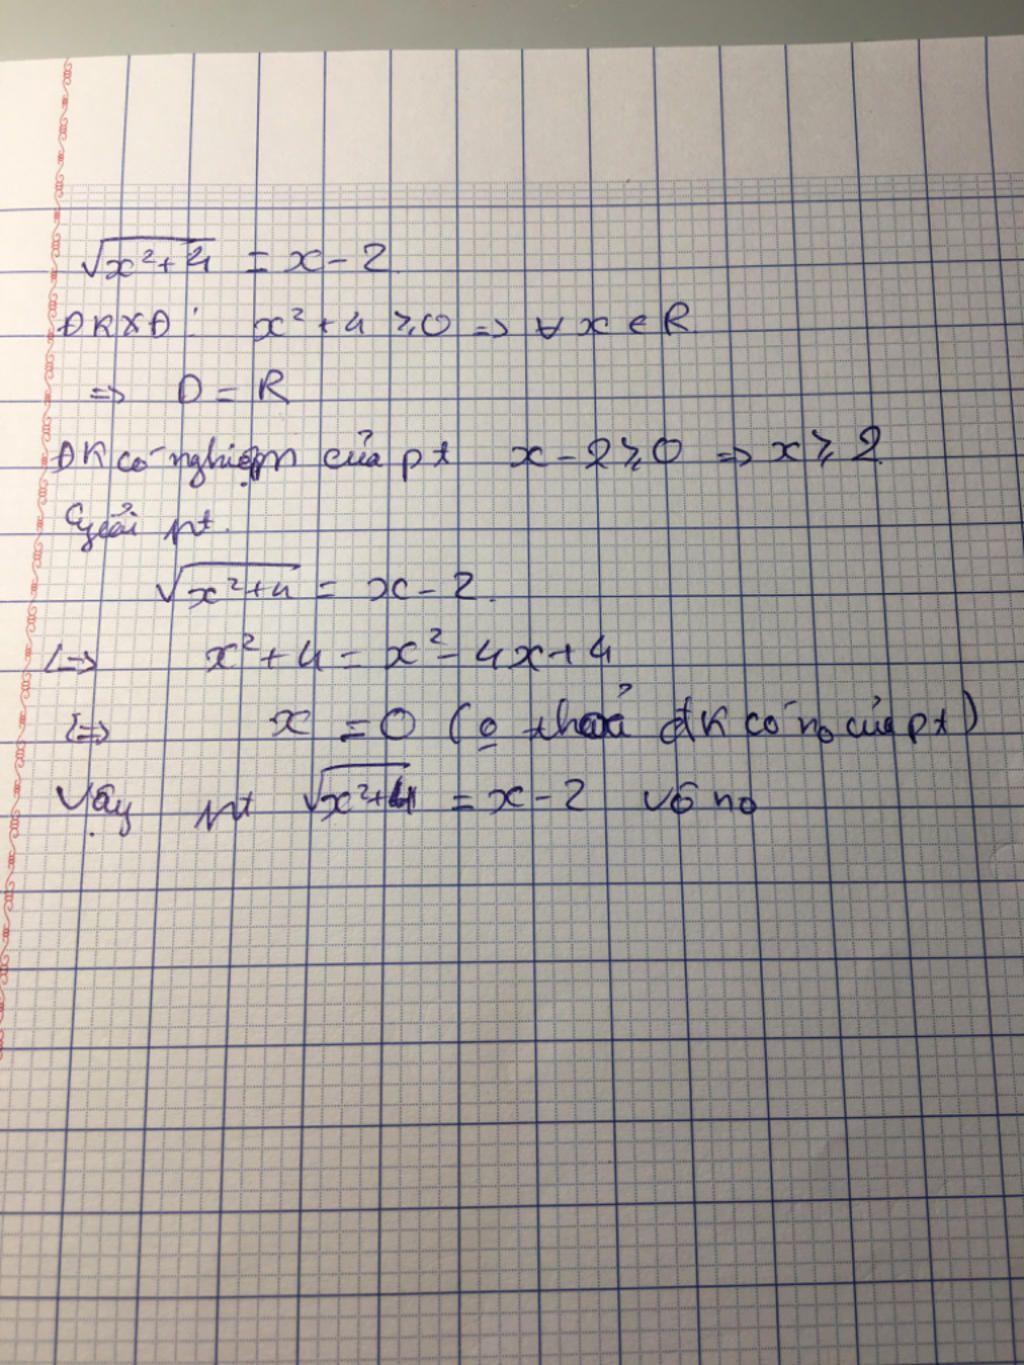 √x²+4 = x - 2.
ĐKXĐ: x² + 4 ≥ 0 => ∀ x ∈ R
=> D = R
ĐK có nghiệm của pt x - 2 ≥ 0 => x ≥ 2
Giải pt.
√x²+4 = x - 2.
<=> x² + 4 = x² - 4x + 4
<=> x = 0 (o thoả đk có no của pt)
Vậy pt √x²+4 = x - 2 vô no